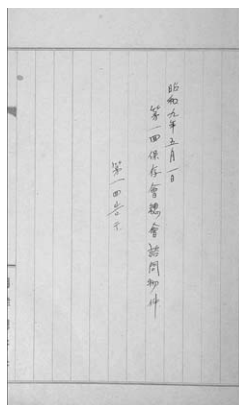 昭和九年五月一日
第一回保存會總會諮問物件
第一回